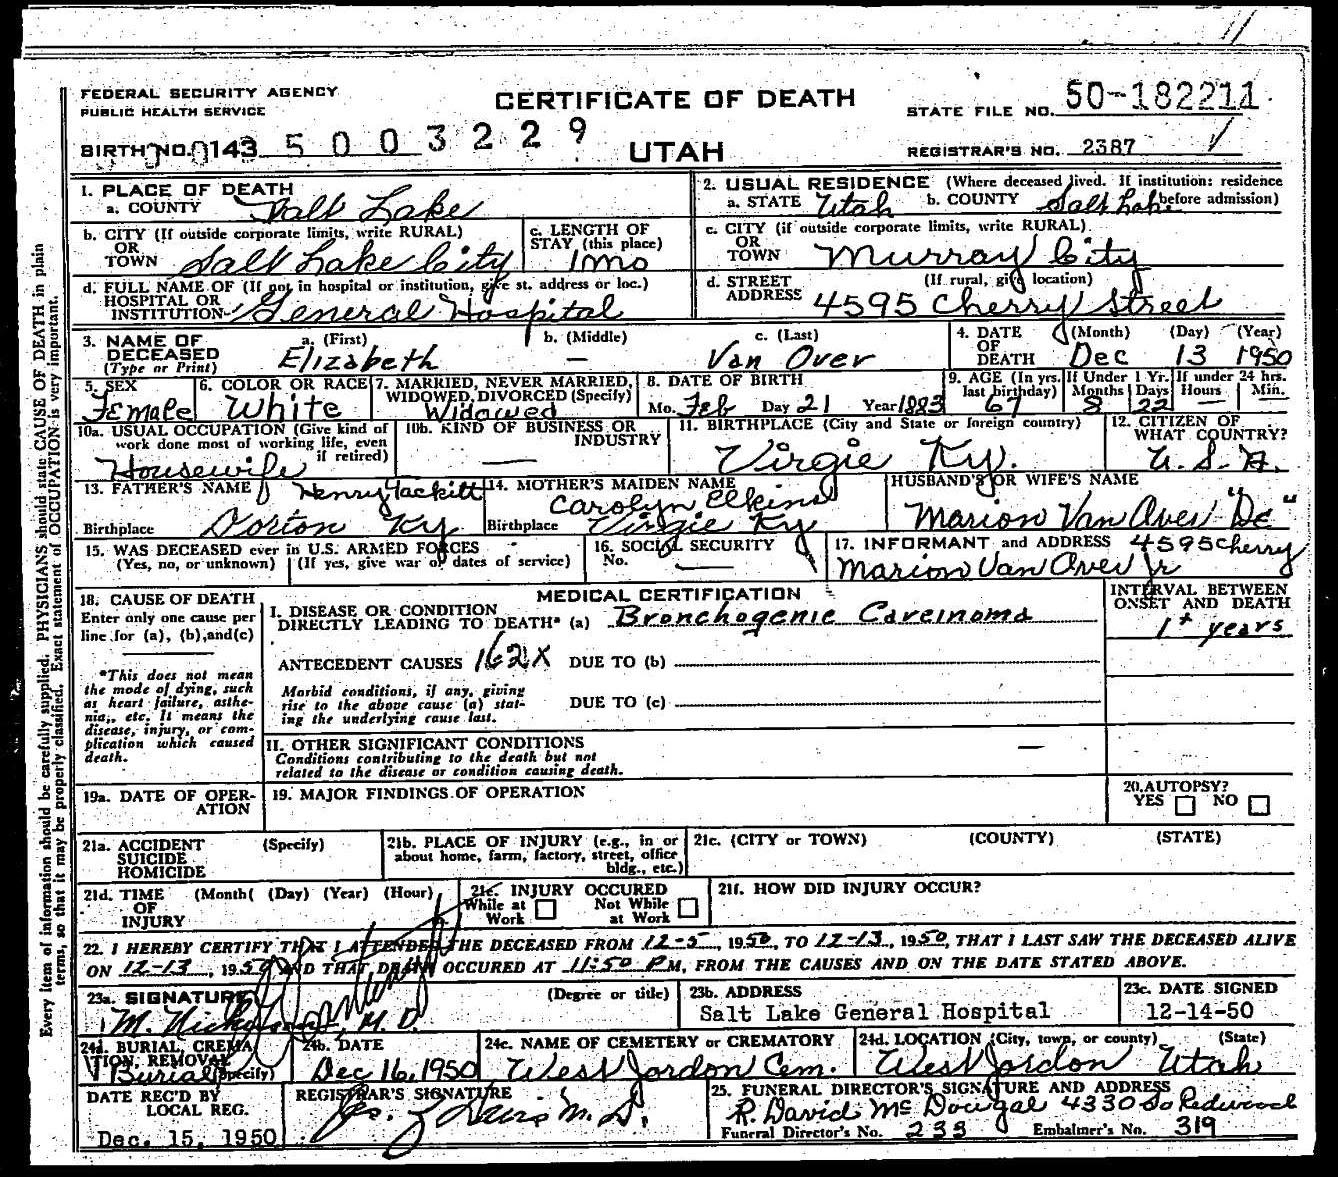 FEDERAL SECURITY AGENCY
PUBLIC HEALTH SERVICE
CERTIFICATE OF DEATH
STATE FILE NO. 50-182211
BIRTH NO. 0143 5003229
UTAH
REGISTRAR'S NO. 2387
Every item of information should be carefully supplied. PHYSICIANS should state CAUSE OF DEATH in plain
terms, so that it may be properly classified. Exact statement of OCCUPATION is very important.
1. PLACE OF DEATH
a. COUNTY Salt Lake
2. USUAL RESIDENCE (Where deceased lived. If institution: residence
a. STATE Utah b. COUNTY Salt Lake before admission)
b. CITY (If outside corporate limits, write RURAL)
OR
TOWN Salt Lake City
c. LENGTH OF
STAY (this place)
1 mo
c. CITY (if outside corporate limits, write RURAL)
OR
TOWN Murray City
d. FULL NAME OF (If not in hospital or institution, give st. address or loc.)
HOSPITAL OR
INSTITUTION General Hospital
d. STREET (If rural, give location)
ADDRESS 4595 Cherry Street
3. NAME OF a. (First) b. (Middle) c. (Last)
DECEASED
(Type or Print) Elizabeth — Van Over
4. DATE (Month) (Day) (Year)
OF
DEATH Dec 13 1950
5. SEX
Female
6. COLOR OR RACE
White
7. MARRIED, NEVER MARRIED,
WIDOWED, DIVORCED (Specify)
Widowed
8. DATE OF BIRTH
Mo. Feb Day 21 Year 1883
9. AGE (In yrs.
last birthday)
67
If Under 1 Yr.
Months Days
8 22
If under 24 hrs.
Hours Min.
—
10a. USUAL OCCUPATION (Give kind of
work done most of working life, even
if retired)
Housewife
10b. KIND OF BUSINESS OR
INDUSTRY
—
11. BIRTHPLACE (City and State or foreign country)
Virgie Ky.
12. CITIZEN OF
WHAT COUNTRY?
U.S.A.
13. FATHER'S NAME Henry Tackitt
Birthplace Dorton Ky
14. MOTHER'S MAIDEN NAME
Carolyn Elkins
Birthplace Virgie Ky
HUSBAND'S OR WIFE'S NAME
Marion Van Over "De"
15. WAS DECEASED ever in U.S. ARMED FORCES
(Yes, no, or unknown) (If yes, give war or dates of service)
16. SOCIAL SECURITY
No. —
17. INFORMANT and ADDRESS 4595 Cherry
Marion Van Over Jr
18. CAUSE OF DEATH
Enter only one cause per
line for (a), (b), and (c)
*This does not mean
the mode of dying, such
as heart failure, asthe-
nia, etc. It means the
disease, injury, or com-
plication which caused
death.
MEDICAL CERTIFICATION
I. DISEASE OR CONDITION
DIRECTLY LEADING TO DEATH* (a) Bronchogenic Carcinoma
ANTECEDENT CAUSES 162X DUE TO (b)
Morbid conditions, if any, giving
rise to the above cause (a) stat-
ing the underlying cause last.
DUE TO (c)
II. OTHER SIGNIFICANT CONDITIONS —
Conditions contributing to the death but not
related to the disease or condition causing death.
INTERVAL BETWEEN
ONSET AND DEATH
1+ years
19a. DATE OF OPER-
ATION
19. MAJOR FINDINGS OF OPERATION
20. AUTOPSY?
YES NO
21a. ACCIDENT (Specify)
SUICIDE
HOMICIDE
21b. PLACE OF INJURY (e.g., in or
about home, farm, factory, street, office
bldg., etc.)
21c. (CITY or TOWN) (COUNTY) (STATE)
21d. TIME (Month( (Day) (Year) (Hour)
OF
INJURY
21e. INJURY OCCURED
While at Work Not While at Work
21f. HOW DID INJURY OCCUR?
22. I HEREBY CERTIFY THAT I ATTENDED THE DECEASED FROM 12-5, 1950, TO 12-13, 1950, THAT I LAST SAW THE DECEASED ALIVE
ON 12-13, 1950 AND THAT DEATH OCCURED AT 11:50 PM, FROM THE CAUSES AND ON THE DATE STATED ABOVE.
23a. SIGNATURE (Degree or title)
M. Nicholson, M.D.
23b. ADDRESS
Salt Lake General Hospital
23c. DATE SIGNED
12-14-50
24a. BURIAL, CREMA-
TION, REMOVAL
Burial (Specify)
24b. DATE
Dec 16, 1950
24c. NAME OF CEMETERY or CREMATORY
West Jordon Cem.
24d. LOCATION (City, town, or county) (State)
West Jordon Utah
DATE REC'D BY
LOCAL REG.
Dec. 15, 1950
REGISTRAR'S SIGNATURE
M.D.
25. FUNERAL DIRECTOR'S SIGNATURE AND ADDRESS
R. David McDougal 4330 So Redwood
Funeral Director's No. 233 Embalmer's No. 319